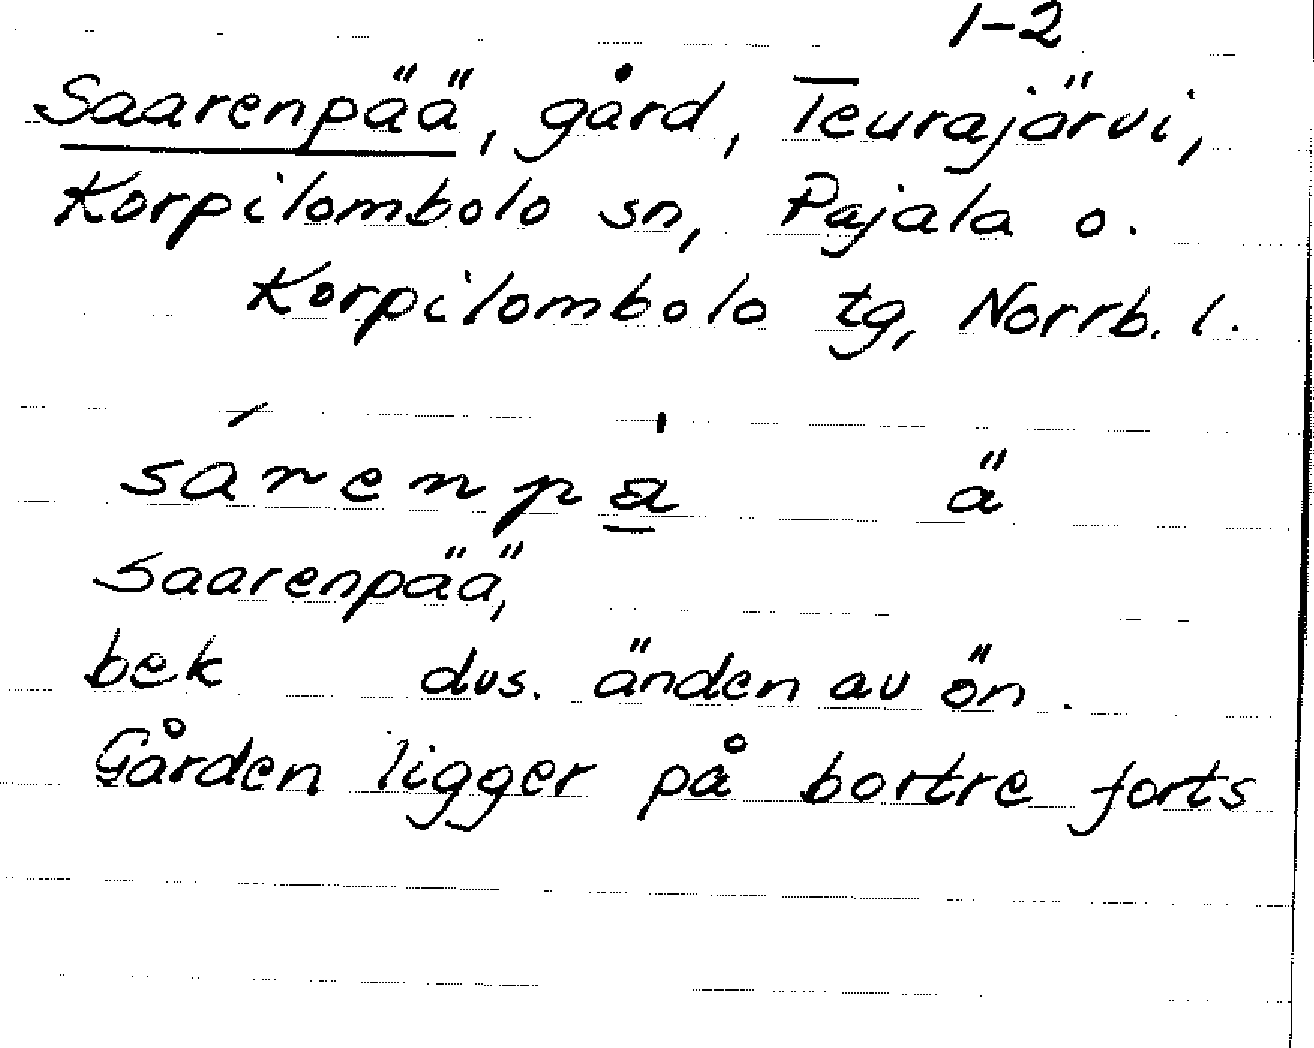 1-2
Saarenpää, gård, Teurajärvi,
Korpilombolo sn, Pajala o.
Korpilombolo tg, Norrb. l.
sárenpa̲ ä
Saarenpää,
bek dvs. änden av ön.
Gården ligger på bortre forts